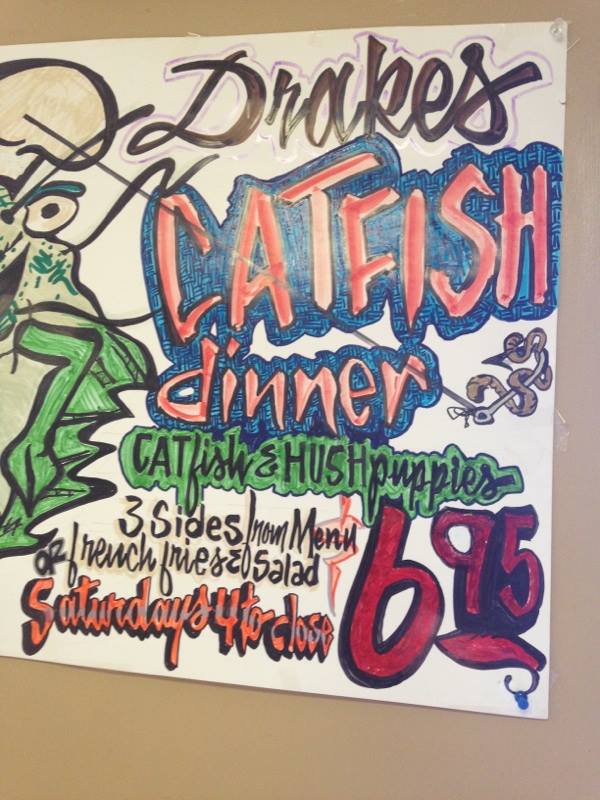 Drakes
CATFISH
dinner
CATfish & HUSHpuppies
3 Sides from Menu
OR french fries & Salad
Saturdays 4 to close
6 95